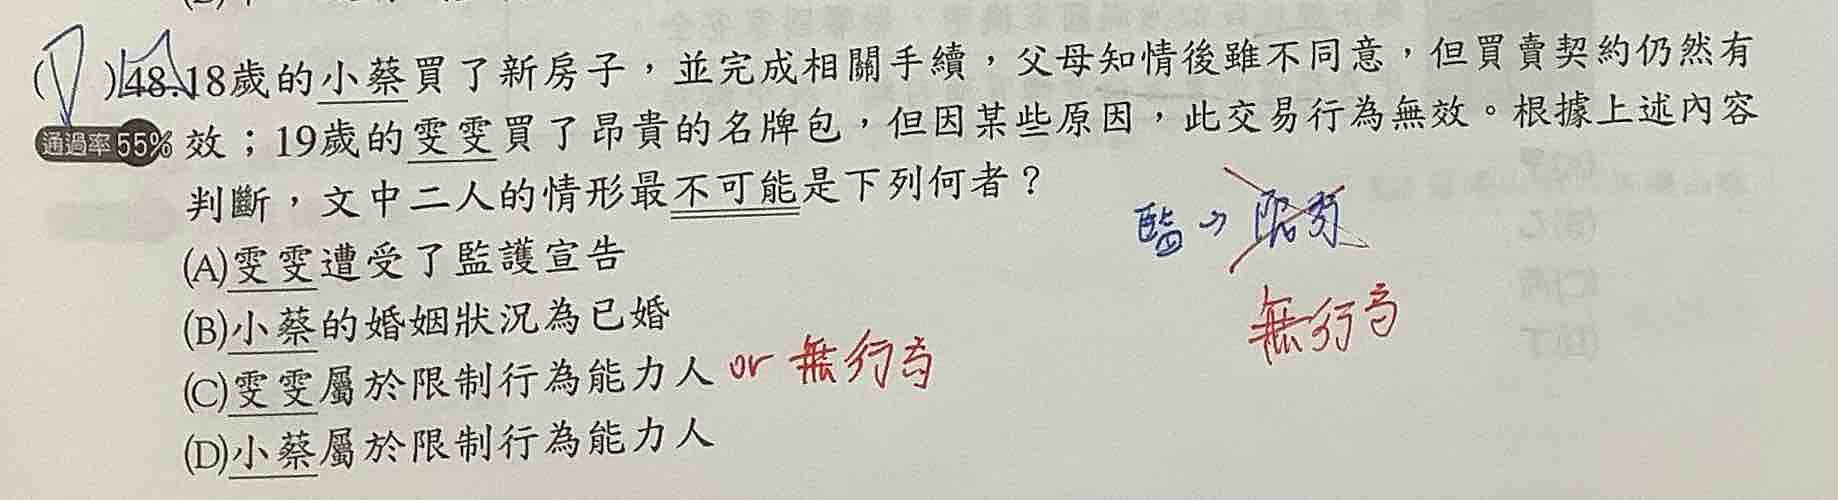 (D)48.18歲的小蔡買了新房子，並完成相關手續，父母知情後雖不同意，但買賣契約仍然有
通過率55% 效；19歲的雯雯買了昂貴的名牌包，但因某些原因，此交易行為無效。根據上述內容
判斷，文中二人的情形最不可能是下列何者？
監→限行
(A)雯雯遭受了監護宣告
(B)小蔡的婚姻狀況為已婚
無行為
(C)雯雯屬於限制行為能力人 or 無行為
(D)小蔡屬於限制行為能力人